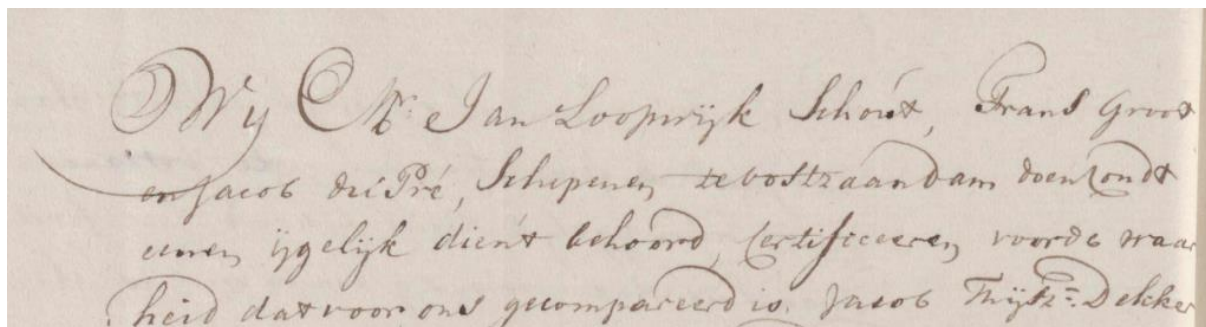 Wy Mr. Jan Loopwijk Schout, Frans Groot
en Jacob du Pré, Schepenen te Oostzaandam doen condt
eenen ijgelijk dient behoord, Certificeeren voorde waar
heid dat voor ons gecompareerd is Jacob Thijsz: Dekker